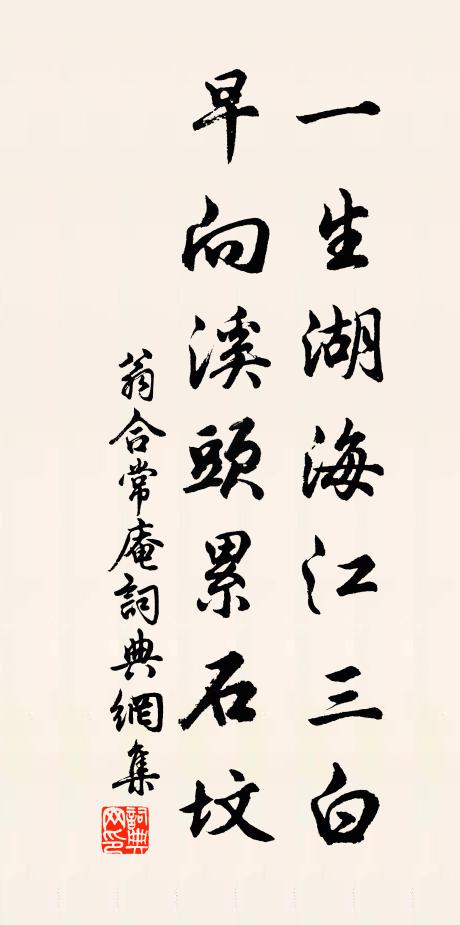 一生湖海江三白
早向溪頭累石墳
翁合常庵詞典網集
詞典網印